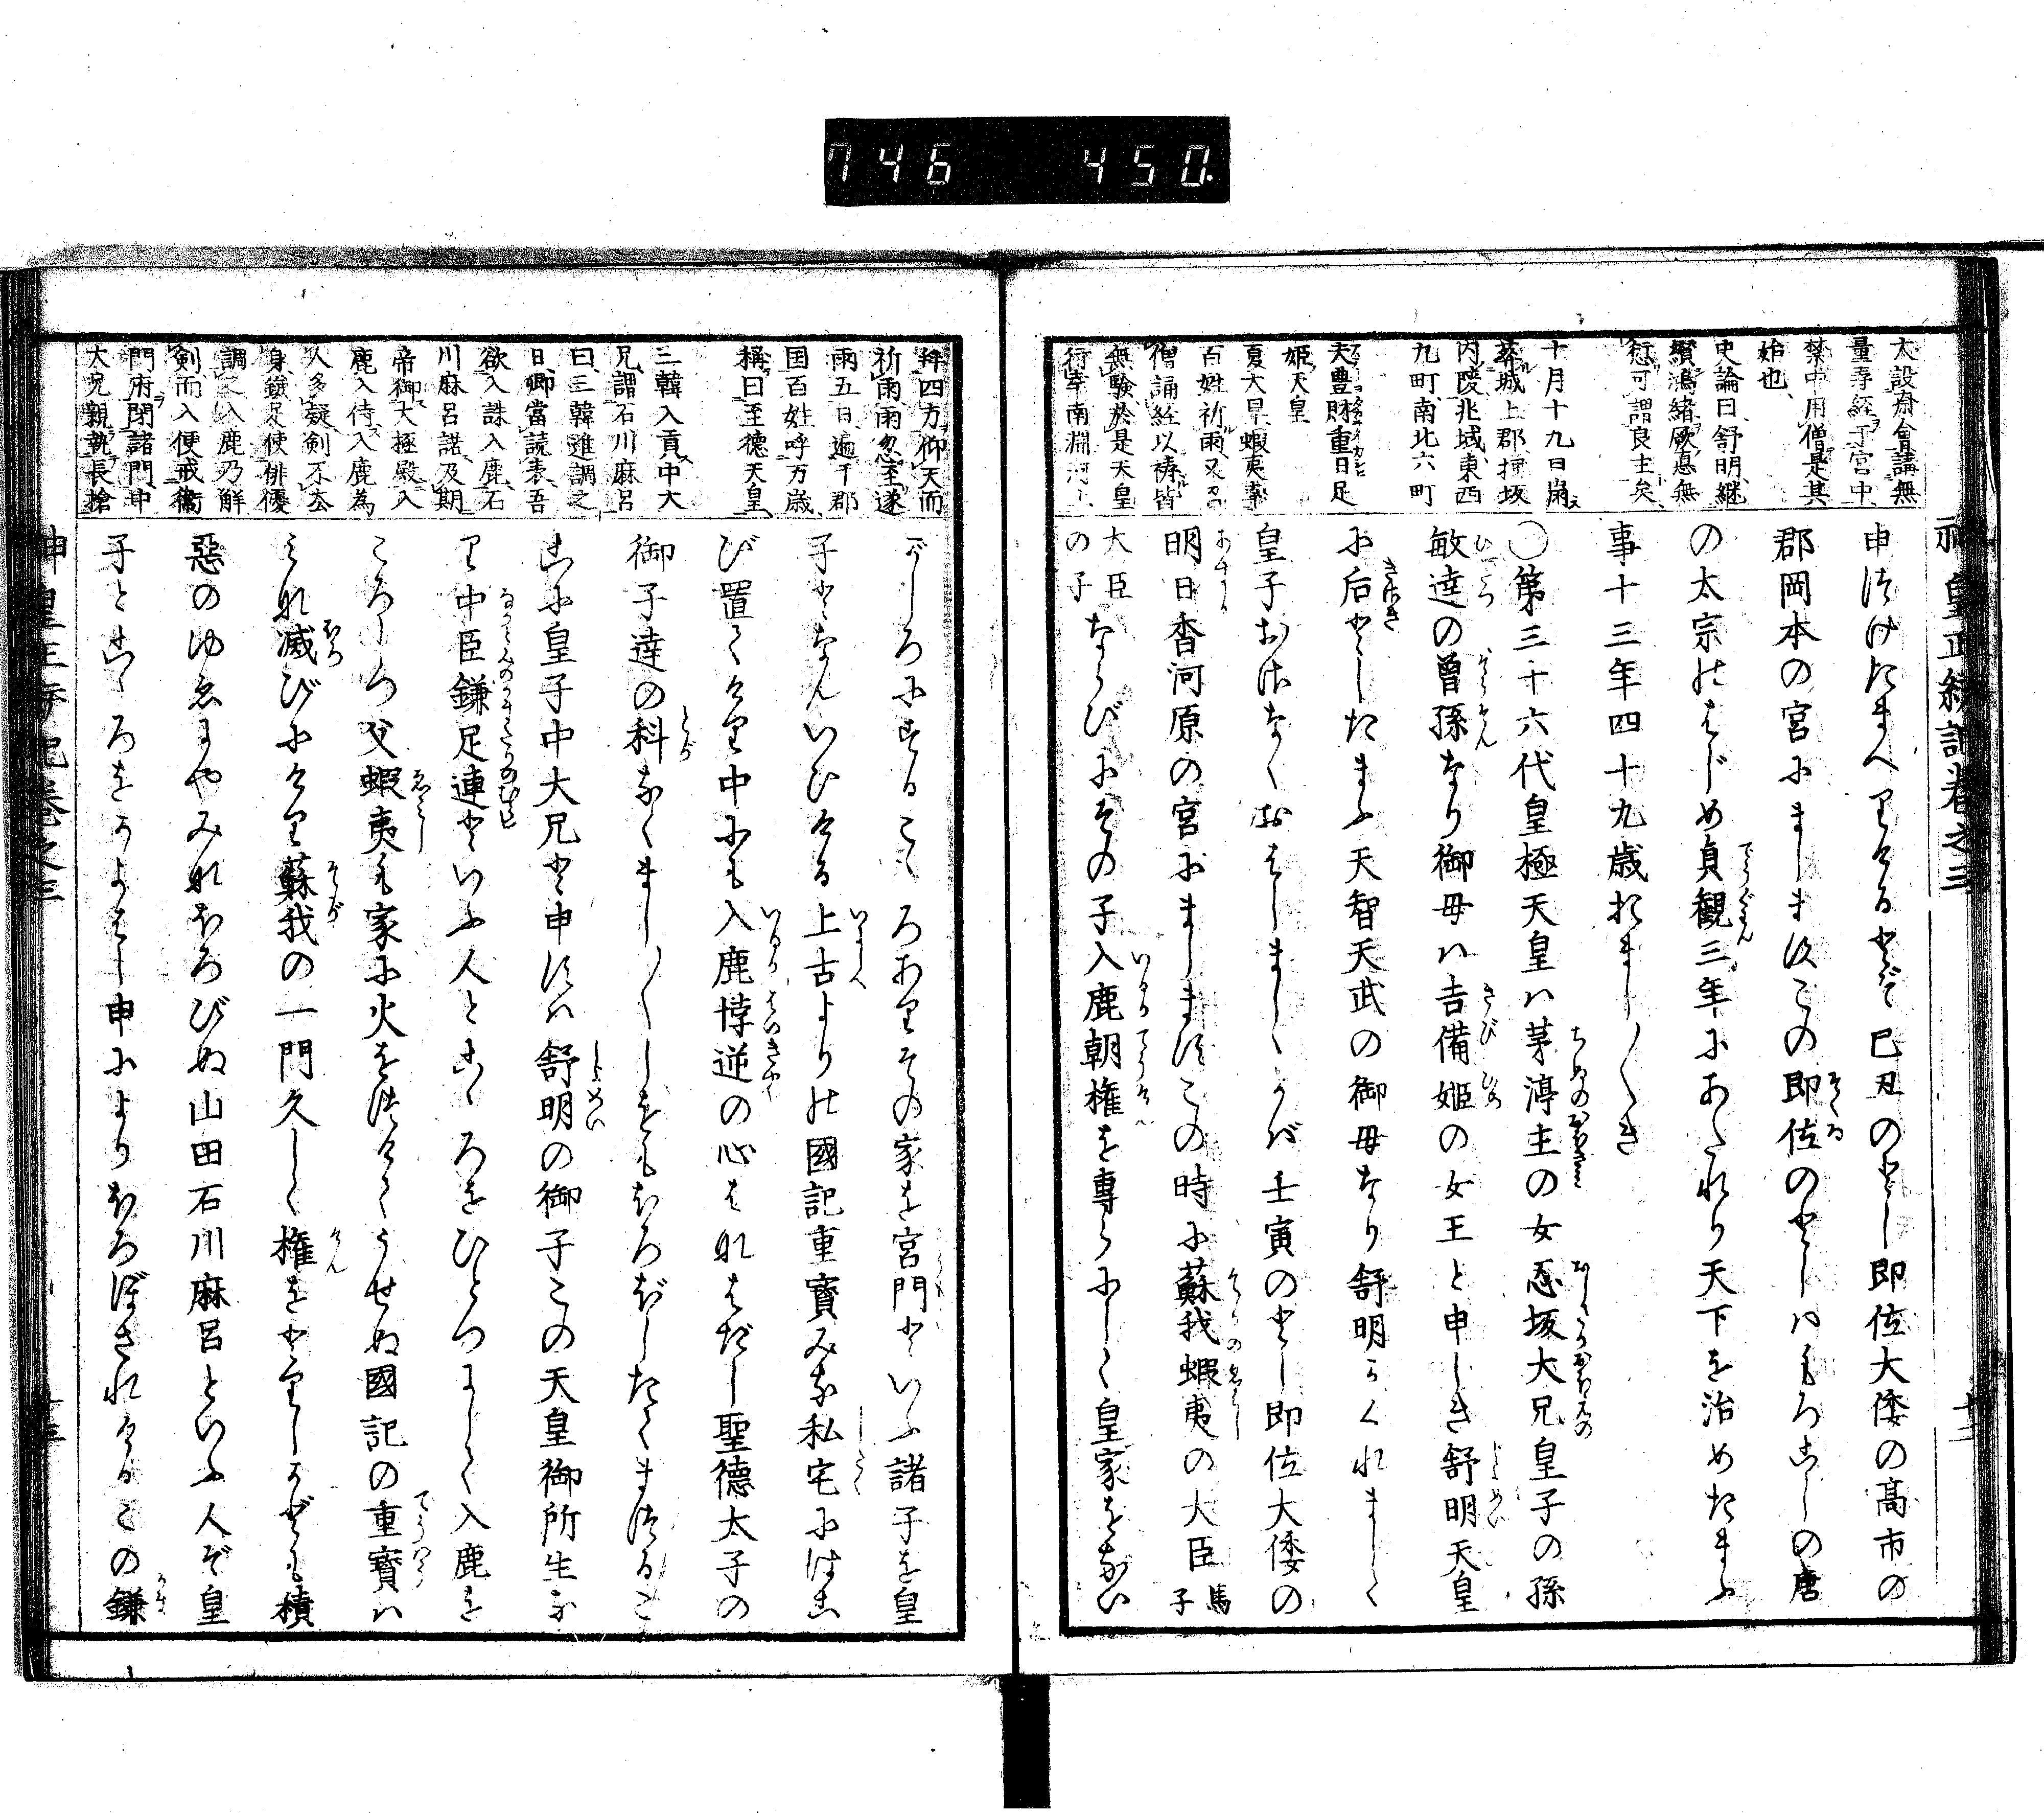 746 450.
神皇正統記巻之三
太設斎会講無
量寿経于宮中
禁中用僧是其
始也
史論曰舒明継
纉鴻緒厥徳無
愆可謂良主矣
十月十九日崩
葬城上郡押坂
内陵兆域東西
九町南北六町
天豊財重日足
姫天皇
夏大旱蝦夷率
百姓祈雨又
僧誦経以祷皆
無験於是天皇
行幸南淵河上
申つけたまへりけるとぞ己丑のとし即位大倭の高市の
郡岡本の宮にましますこの即位のとしハもろこしの唐
の太宗のはじめ貞観三年にあたれり天下を治めたまふ
事十三年四十九歳おまし〳〵き
〇第三十六代皇極天皇ハ茅渟王の女忍坂大兄皇子の孫
敏達の曽孫なり御母ハ吉備姫の女王と申しき舒明天皇
に后としたまふ天智天武の御母なり舒明かくれまして
皇子おさなくおはしましゝかば壬寅のとし即位大倭の
明日香河原の宮にましますこの時に蘇我蝦夷の大臣 馬子
大臣の子 ならびにその子入鹿朝権を専らにして皇家をない
拝四方仰天而
祈雨雨忽至遂
雨五日遍于郡
国百姓呼万歳
称曰至徳天皇
三韓入貢中大
兄謂石川麻呂
曰三韓進調之
日卿当読表吾
欲入誅入鹿石
川麻呂諾及期
帝御大極殿入
鹿入侍入鹿為
人多疑剣不去
身鎌足使俳優
調之入鹿乃解
剣而入便戒衛
門府閉諸門中
大兄親執長槍
がしろにするこゝろありその家を宮門といふ諸子を皇
子となんいひける上古よりの國記重寳みな私宅にはこ
び置てけり中にも入鹿悖逆の心はなはだし聖徳太子の
御子達の科なくまし〳〵しをもほろぼしたてまつるこ
こに皇子中大兄と申すハ舒明の御子この天皇御所生な
り中臣鎌足連といふ人とこゝろをひとつにして入鹿を
ころしつ父蝦夷も家に火をつけてうせぬ國記の重寳ハ
みな滅びにけり蘇我の一門久しく権をとりしかども積
惡のゆゑにやみなほろびぬ山田石川麻呂といふ人ぞ皇
子とこゝろをかよはし申によりほろぼされけるこの鎌
神皇正統記巻之三